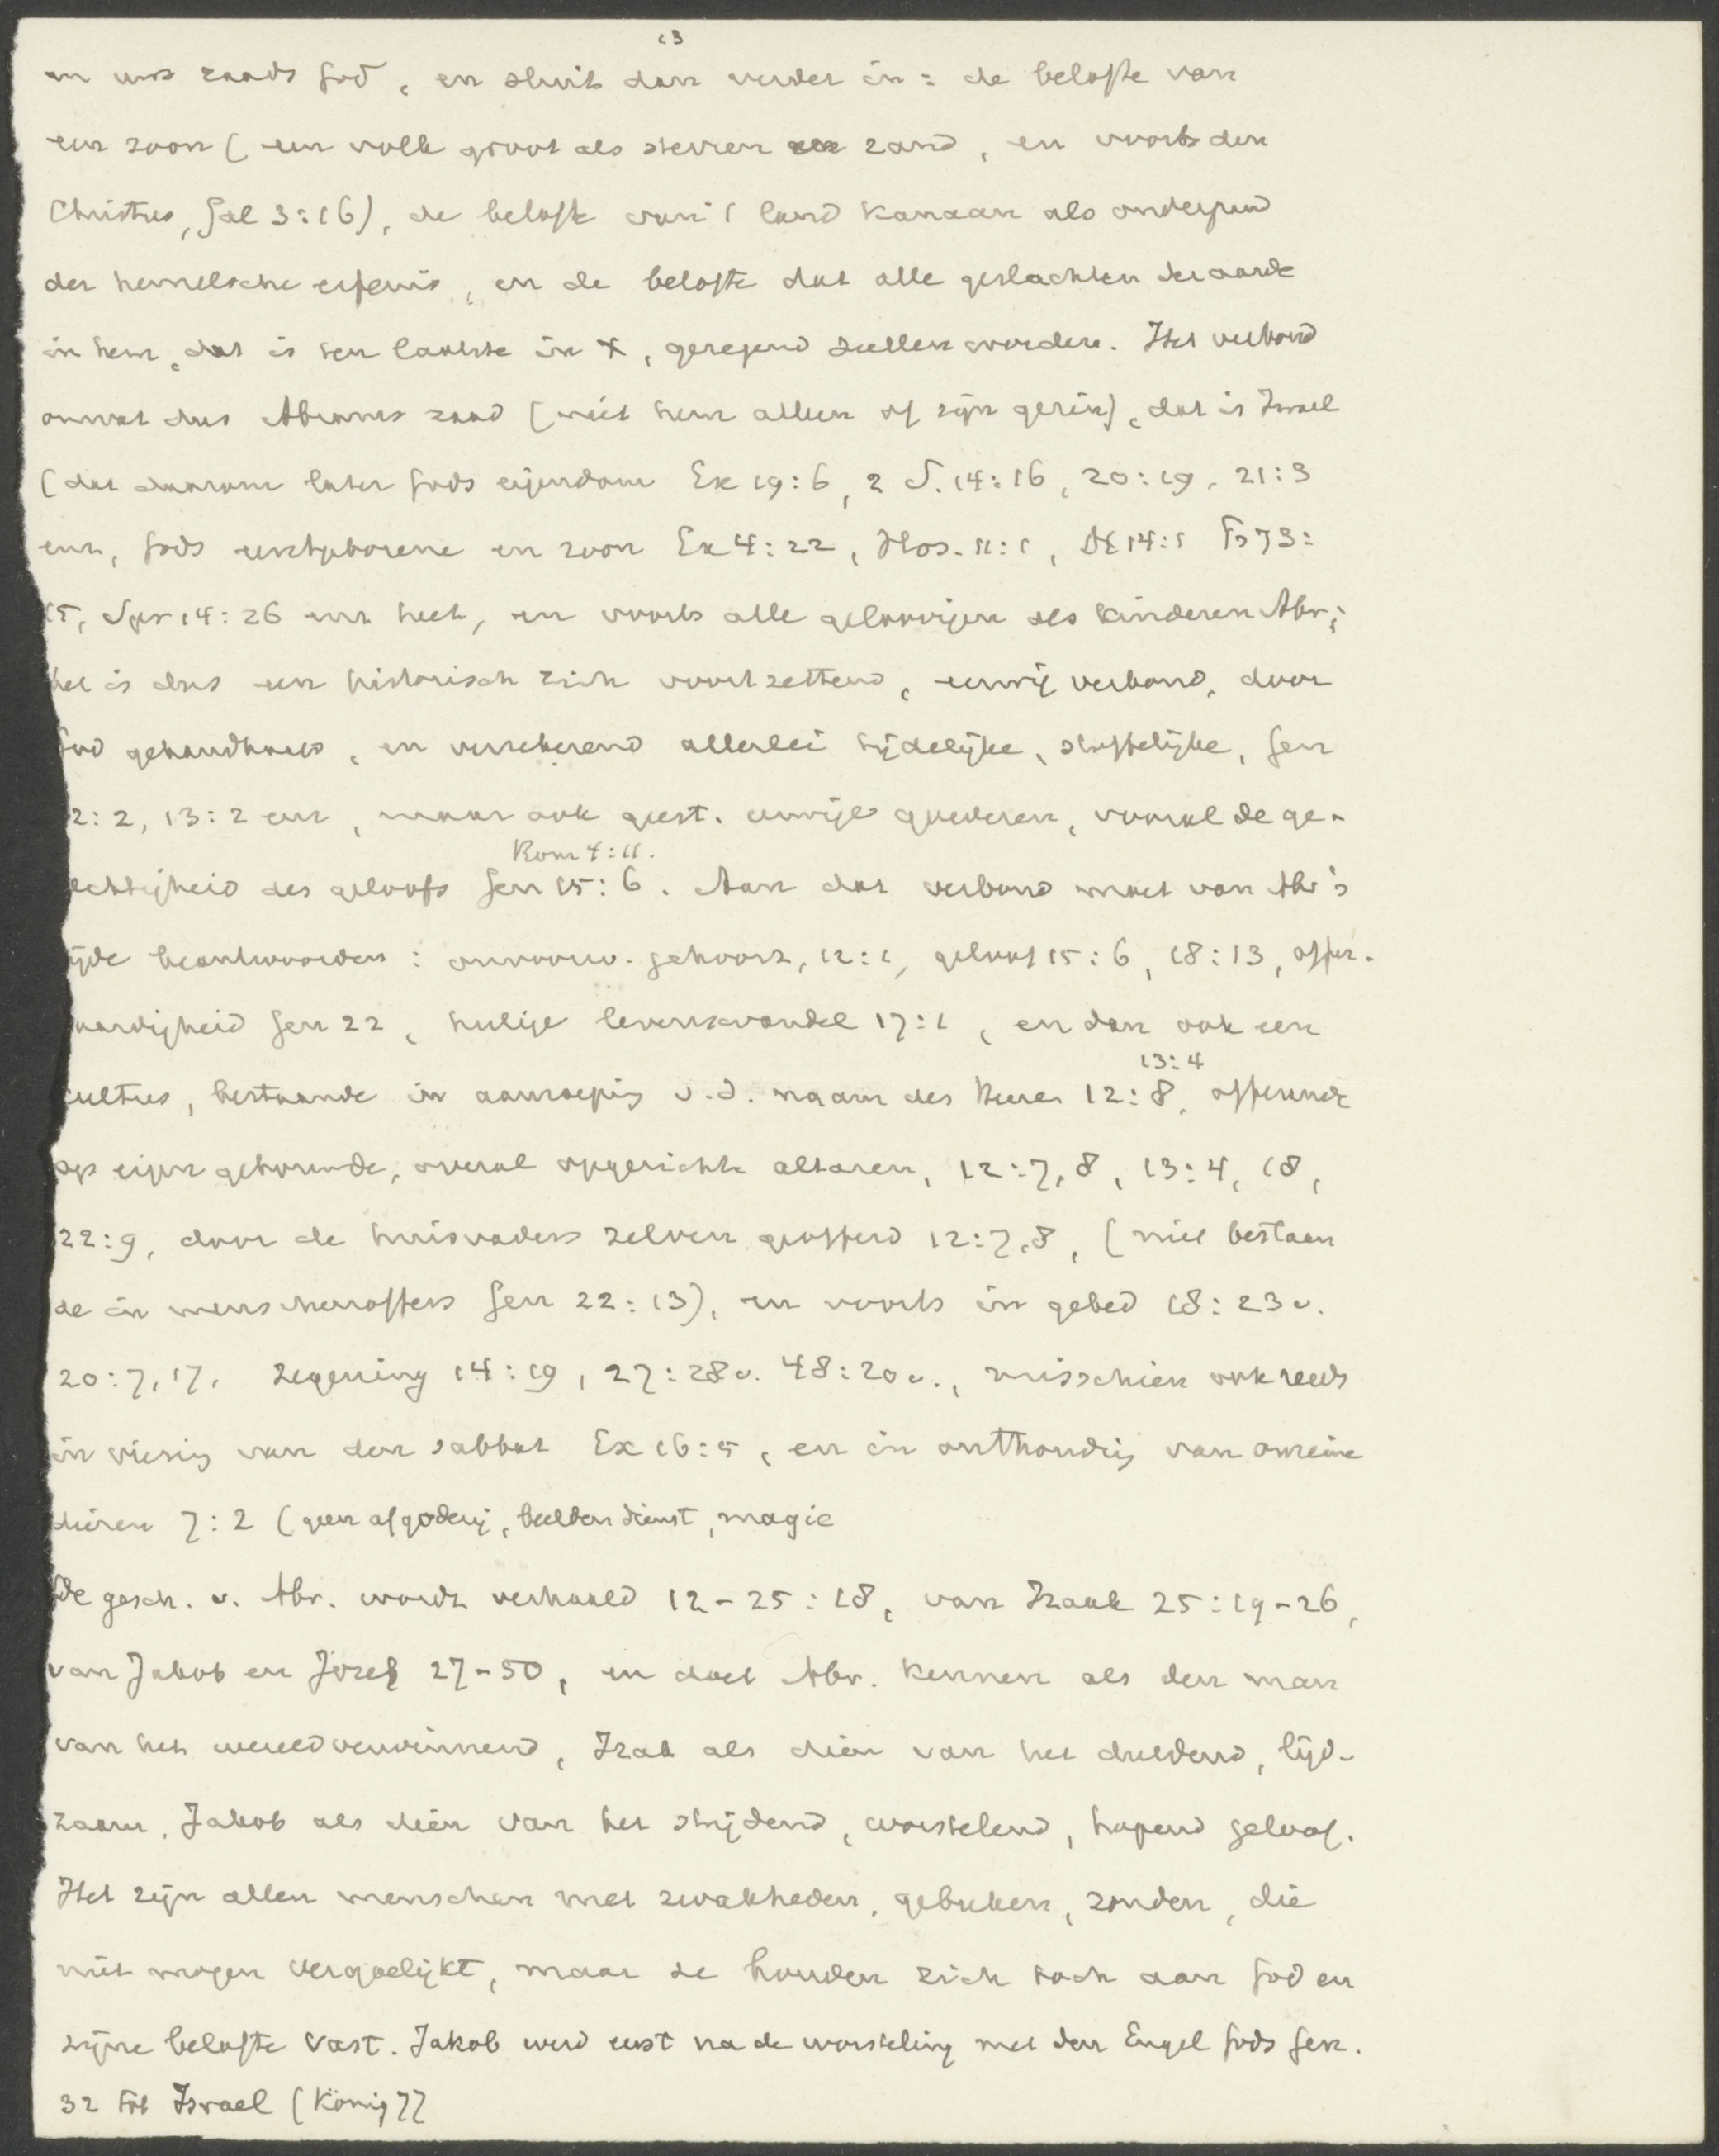 13
en uws zaads God, en sluit dan verder in: de belofte van
een zoon (een volk groot als sterren en zand, en voorts den
Christus, Gal 3:16), de belofte van 't land Kanaan als onderpand
der hemelsche erfenis, en de belofte dat alle geslachten der aarde
in hem, dat is ten laatste in X, gezegend zullen worden. Het verbond
omvat dus Abrams zaad (niet hem alleen of zijn gezin), dat is Israel
(dat daarom later Gods eigendom Ex 19:6, 2 S. 14:16, 20:19, 21:3
enz, Gods eerstgeborene en zoon Ex 4:22, Hos. 11:1, Dt 14:1 Ps 73:
15, Spr 14:26 enz heet, en voorts alle geloovigen als kinderen Abr;
het is dus een historisch zich voortzettend, eeuwig verbond, door
God gehandhaafd, en verzekerend allerlei tijdelijke, stoffelijke, Gen
12:2, 13:2 enz, maar ook geest. eeuwige goederen, vooral de ge-
Rom 4:11.
rechtigheid des geloofs Gen 15:6. Aan dat verbond moet van Abr's
zijde beantwoorden: onvoorw. gehoorz, 12:1, geloof 15:6, 18:13, offer-
vaardigheid Gen 22, heilige levenswandel 17:1, en dan ook een
13:4
cultus, bestaande in aanroeping v.d. naam des Heeren 12:8, offerande
op eigen gebouwde, overal opgerichte altaren, 12:7,8, 13:4, 18,
22:9, door de huisvaders zelven geofferd 12:7,8, (niet bestaan
de in menschenoffers Gen 22:13), en voorts in gebed 18:23v.
20:7,17, zegening 14:19, 27:28v. 48:20v., misschien ook reeds
in viering van den sabbat Ex 16:5, en in onthouding van onreine
dieren 7:2 (geen afgoderij, beeldendienst, magie
De gesch. v. Abr. wordt verhaald 12-25:18, van Izaak 25:19-26,
van Jakob en Jozef 27-50, en doet Abr. kennen als den man
van het wereldverwinnend, Izak als dien van het duldend, lijd-
zaam, Jakob als dien van het strijdend, worstelend, hopend geloof.
Het zijn allen menschen met zwakheden, gebreken, zonden, die
niet mogen vergoelijkt, maar ze houden zich toch aan God en
zijne belofte vast. Jakob werd eerst na de worsteling met den Engel Gods Gen.
32 tot Israel (König 77